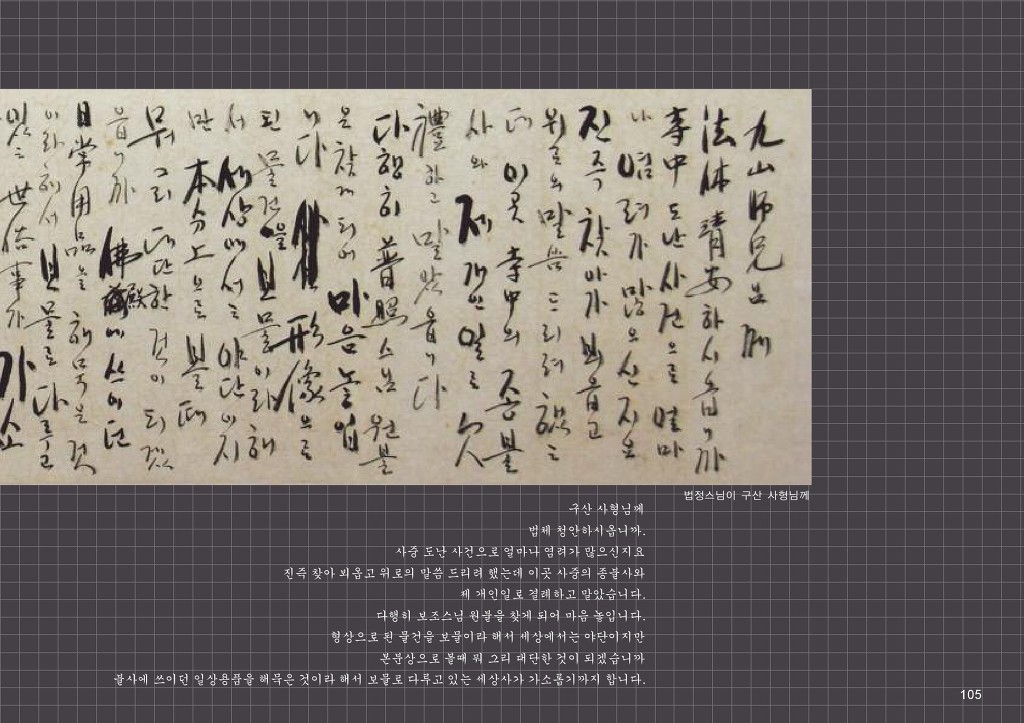 九山師兄님께
法体 請安하시옵니까
寺中 도난사건으로 얼마
나 염려가 많으신지요
진즉 찾아가 뵈옵고
위로의 말씀 드리려 했는
데 이곳 寺中의 종불
사와 제 개인일로 欠
禮하고 말았읍니다
다행히 普照스님 원불
은 찾게 되어 마음 놓입
니다 形像으로
된 물건을 보물이라 해
서 세상에서는 야단이지
만 本分上으로 볼 때
뭐 그리 대단한 것이 되겠
읍니까 佛殿에 쓰이던
日常用品을 해묵은 것
이라 해서 보물로 다루고
있는 世俗事가 가소
법정스님이 구산 사형님께
구산 사형님께
법체 청안하시옵니까.
사중 도난 사건으로 얼마나 염려가 많으신지요
진즉 찾아 뵈옵고 위로의 말씀 드리려 했는데 이곳 사중의 종불사와
제 개인일로 결례하고 말았습니다.
다행히 보조스님 원불을 찾게 되어 마음 놓입니다.
형상으로 된 물건을 보물이라 해서 세상에서는 야단이지만
본분상으로 볼때 뭐 그리 대단한 것이 되겠습니까
불사에 쓰이던 일상용품을 해묵은 것이라 해서 보물로 다루고 있는 세상사가 가소롭기까지 합니다.
105